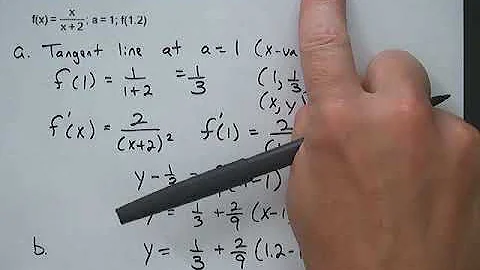 f(x) = x/(x+2); a = 1; f(1.2)
a. Tangent line at a = 1 (x-va
f(1) = 1/(1+2) = 1/3 (1, 1/3
(x, y)
f'(x) = 2/(x+2)² f'(1) = 2/(
y - 1/3 = -1)
y = 1/3 + 2/9 (x-1
b. y = 1/3 + 2/9 (1.2-1